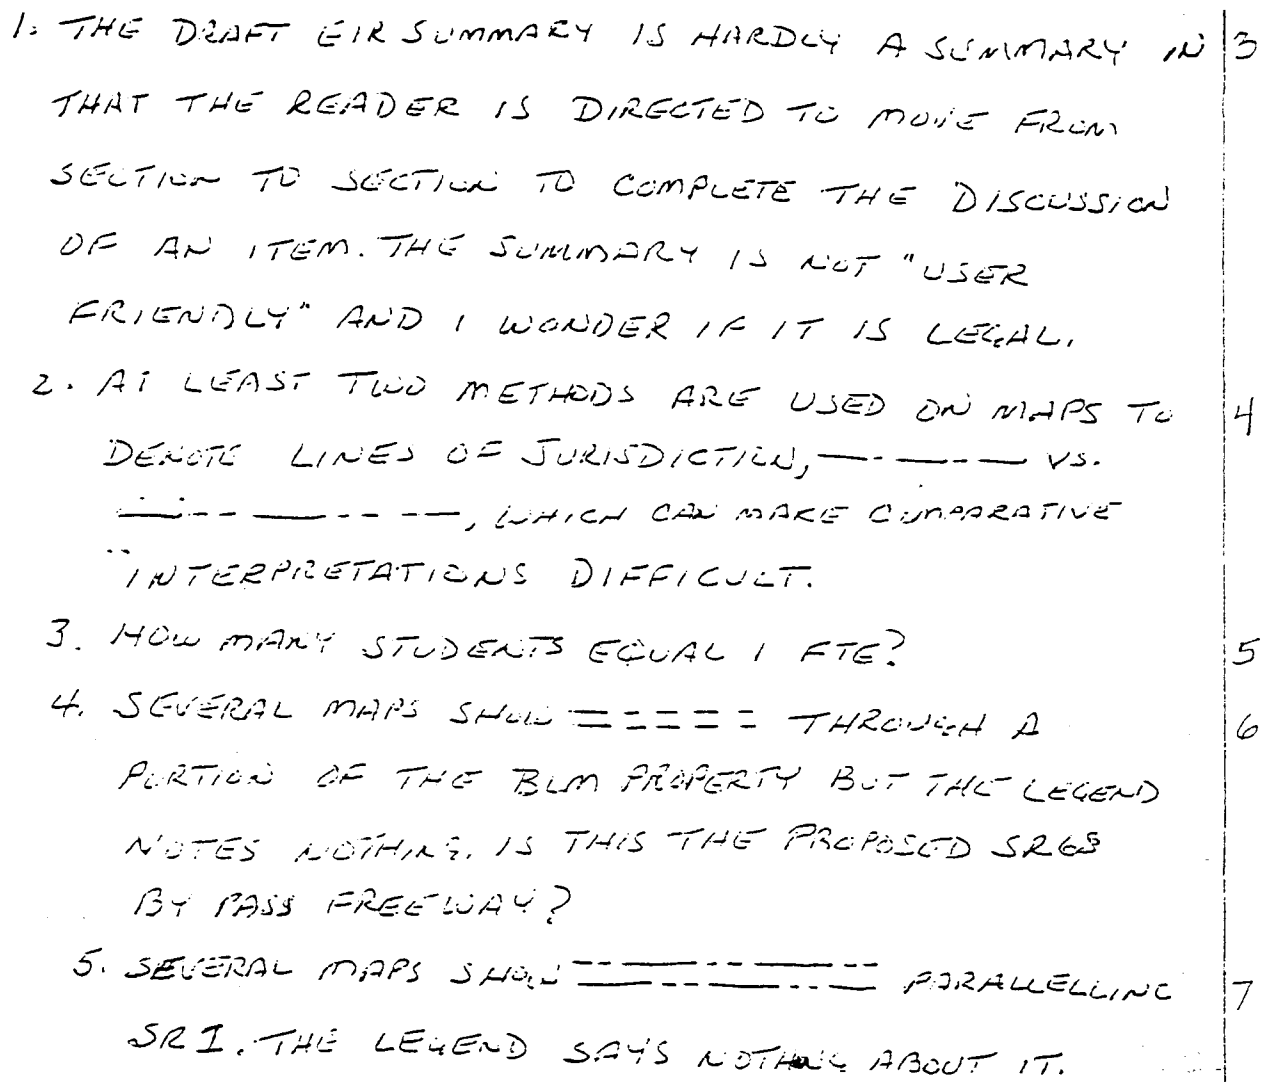 1. THE DRAFT EIR SUMMARY IS HARDLY A SUMMARY IN 3
THAT THE READER IS DIRECTED TO MOVE FROM
SECTION TO SECTION TO COMPLETE THE DISCUSSION
OF AN ITEM. THE SUMMARY IS NOT "USER
FRIENDLY" AND I WONDER IF IT IS LEGAL.
2. AT LEAST TWO METHODS ARE USED ON MAPS TO 4
DENOTE LINES OF JURISDICTION, —-—-— VS.
—--—--—, WHICH CAN MAKE COMPARATIVE
INTERPRETATIONS DIFFICULT.
3. HOW MANY STUDENTS EQUAL 1 FTE? 5
4. SEVERAL MAPS SHOW ===== THROUGH A 6
PORTION OF THE BLM PROPERTY BUT THE LEGEND
NOTES NOTHING. IS THIS THE PROPOSED SR68
BY PASS FREEWAY?
5. SEVERAL MAPS SHOW PARALLELLING 7
SR1. THE LEGEND SAYS NOTHING ABOUT IT.